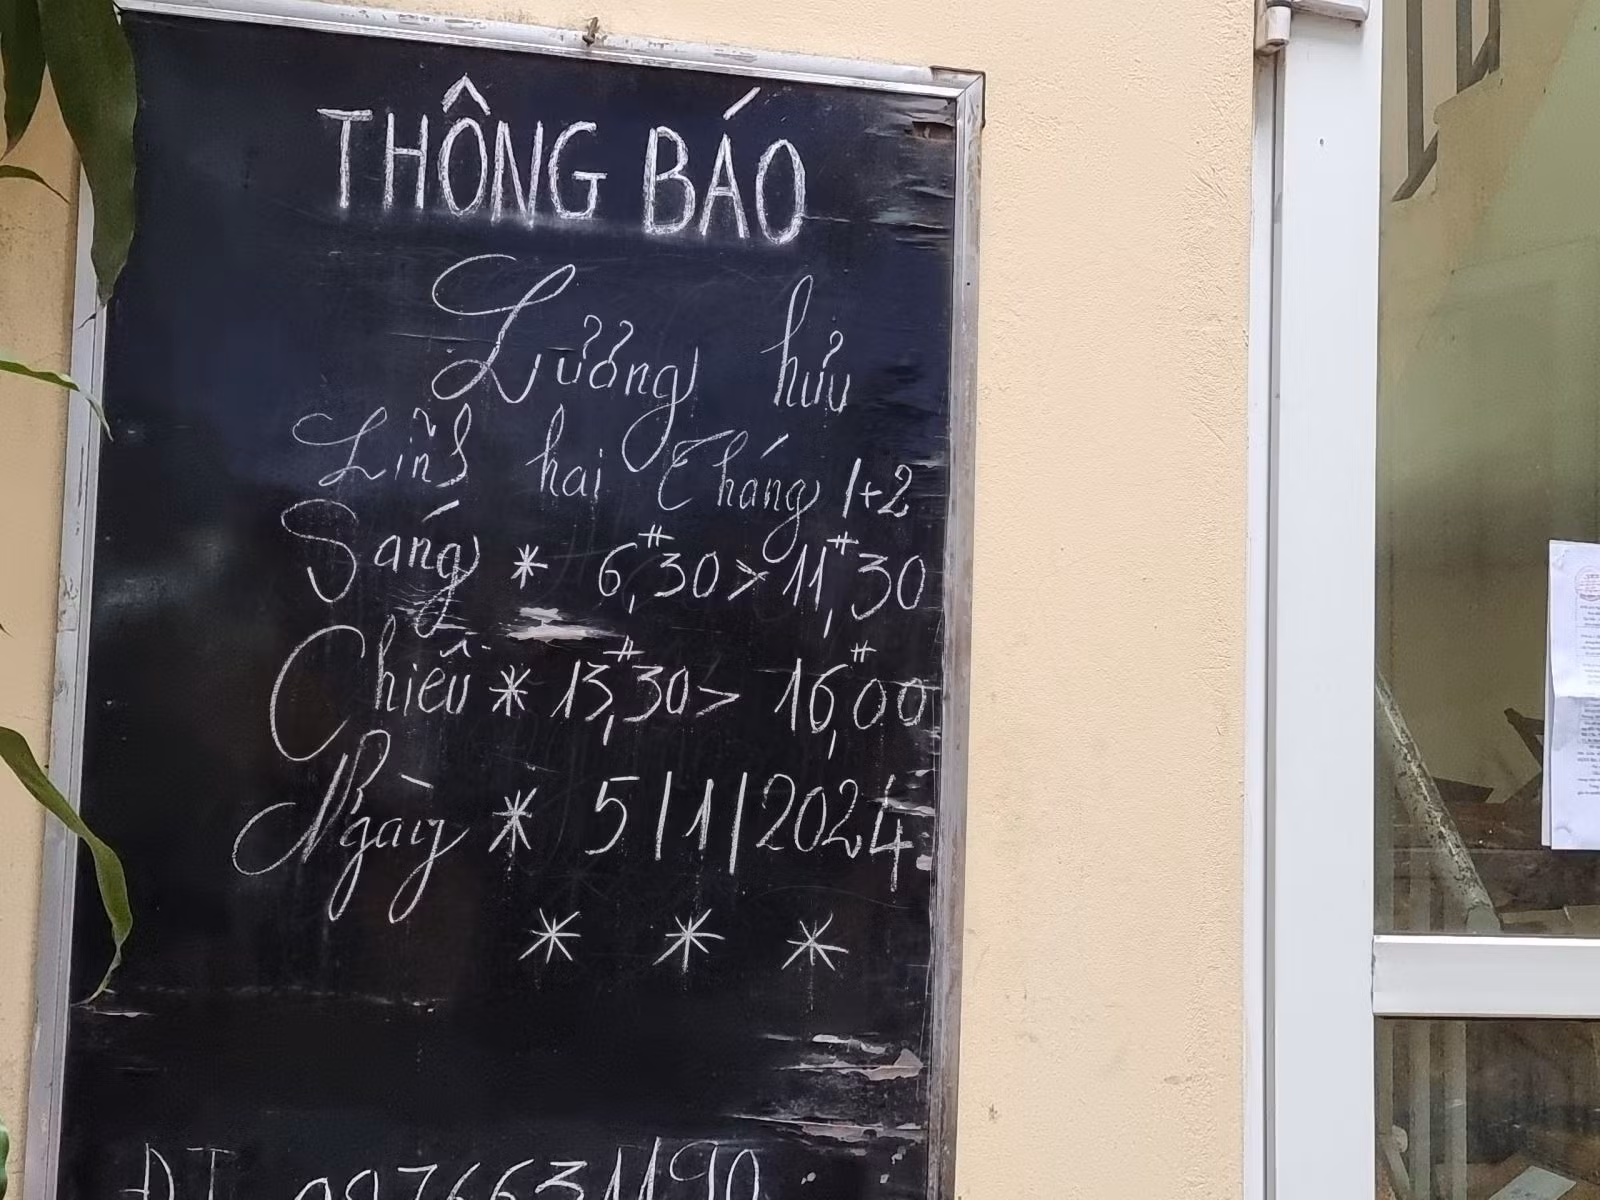 THÔNG BÁO
Lương hưu
Lĩnh hai Tháng 1+2
Sáng * 6,#30 > 11,#30
Chiều * 13,#30 > 16,#00
Ngày * 5/1/2024
* * *
ĐT 0976631190